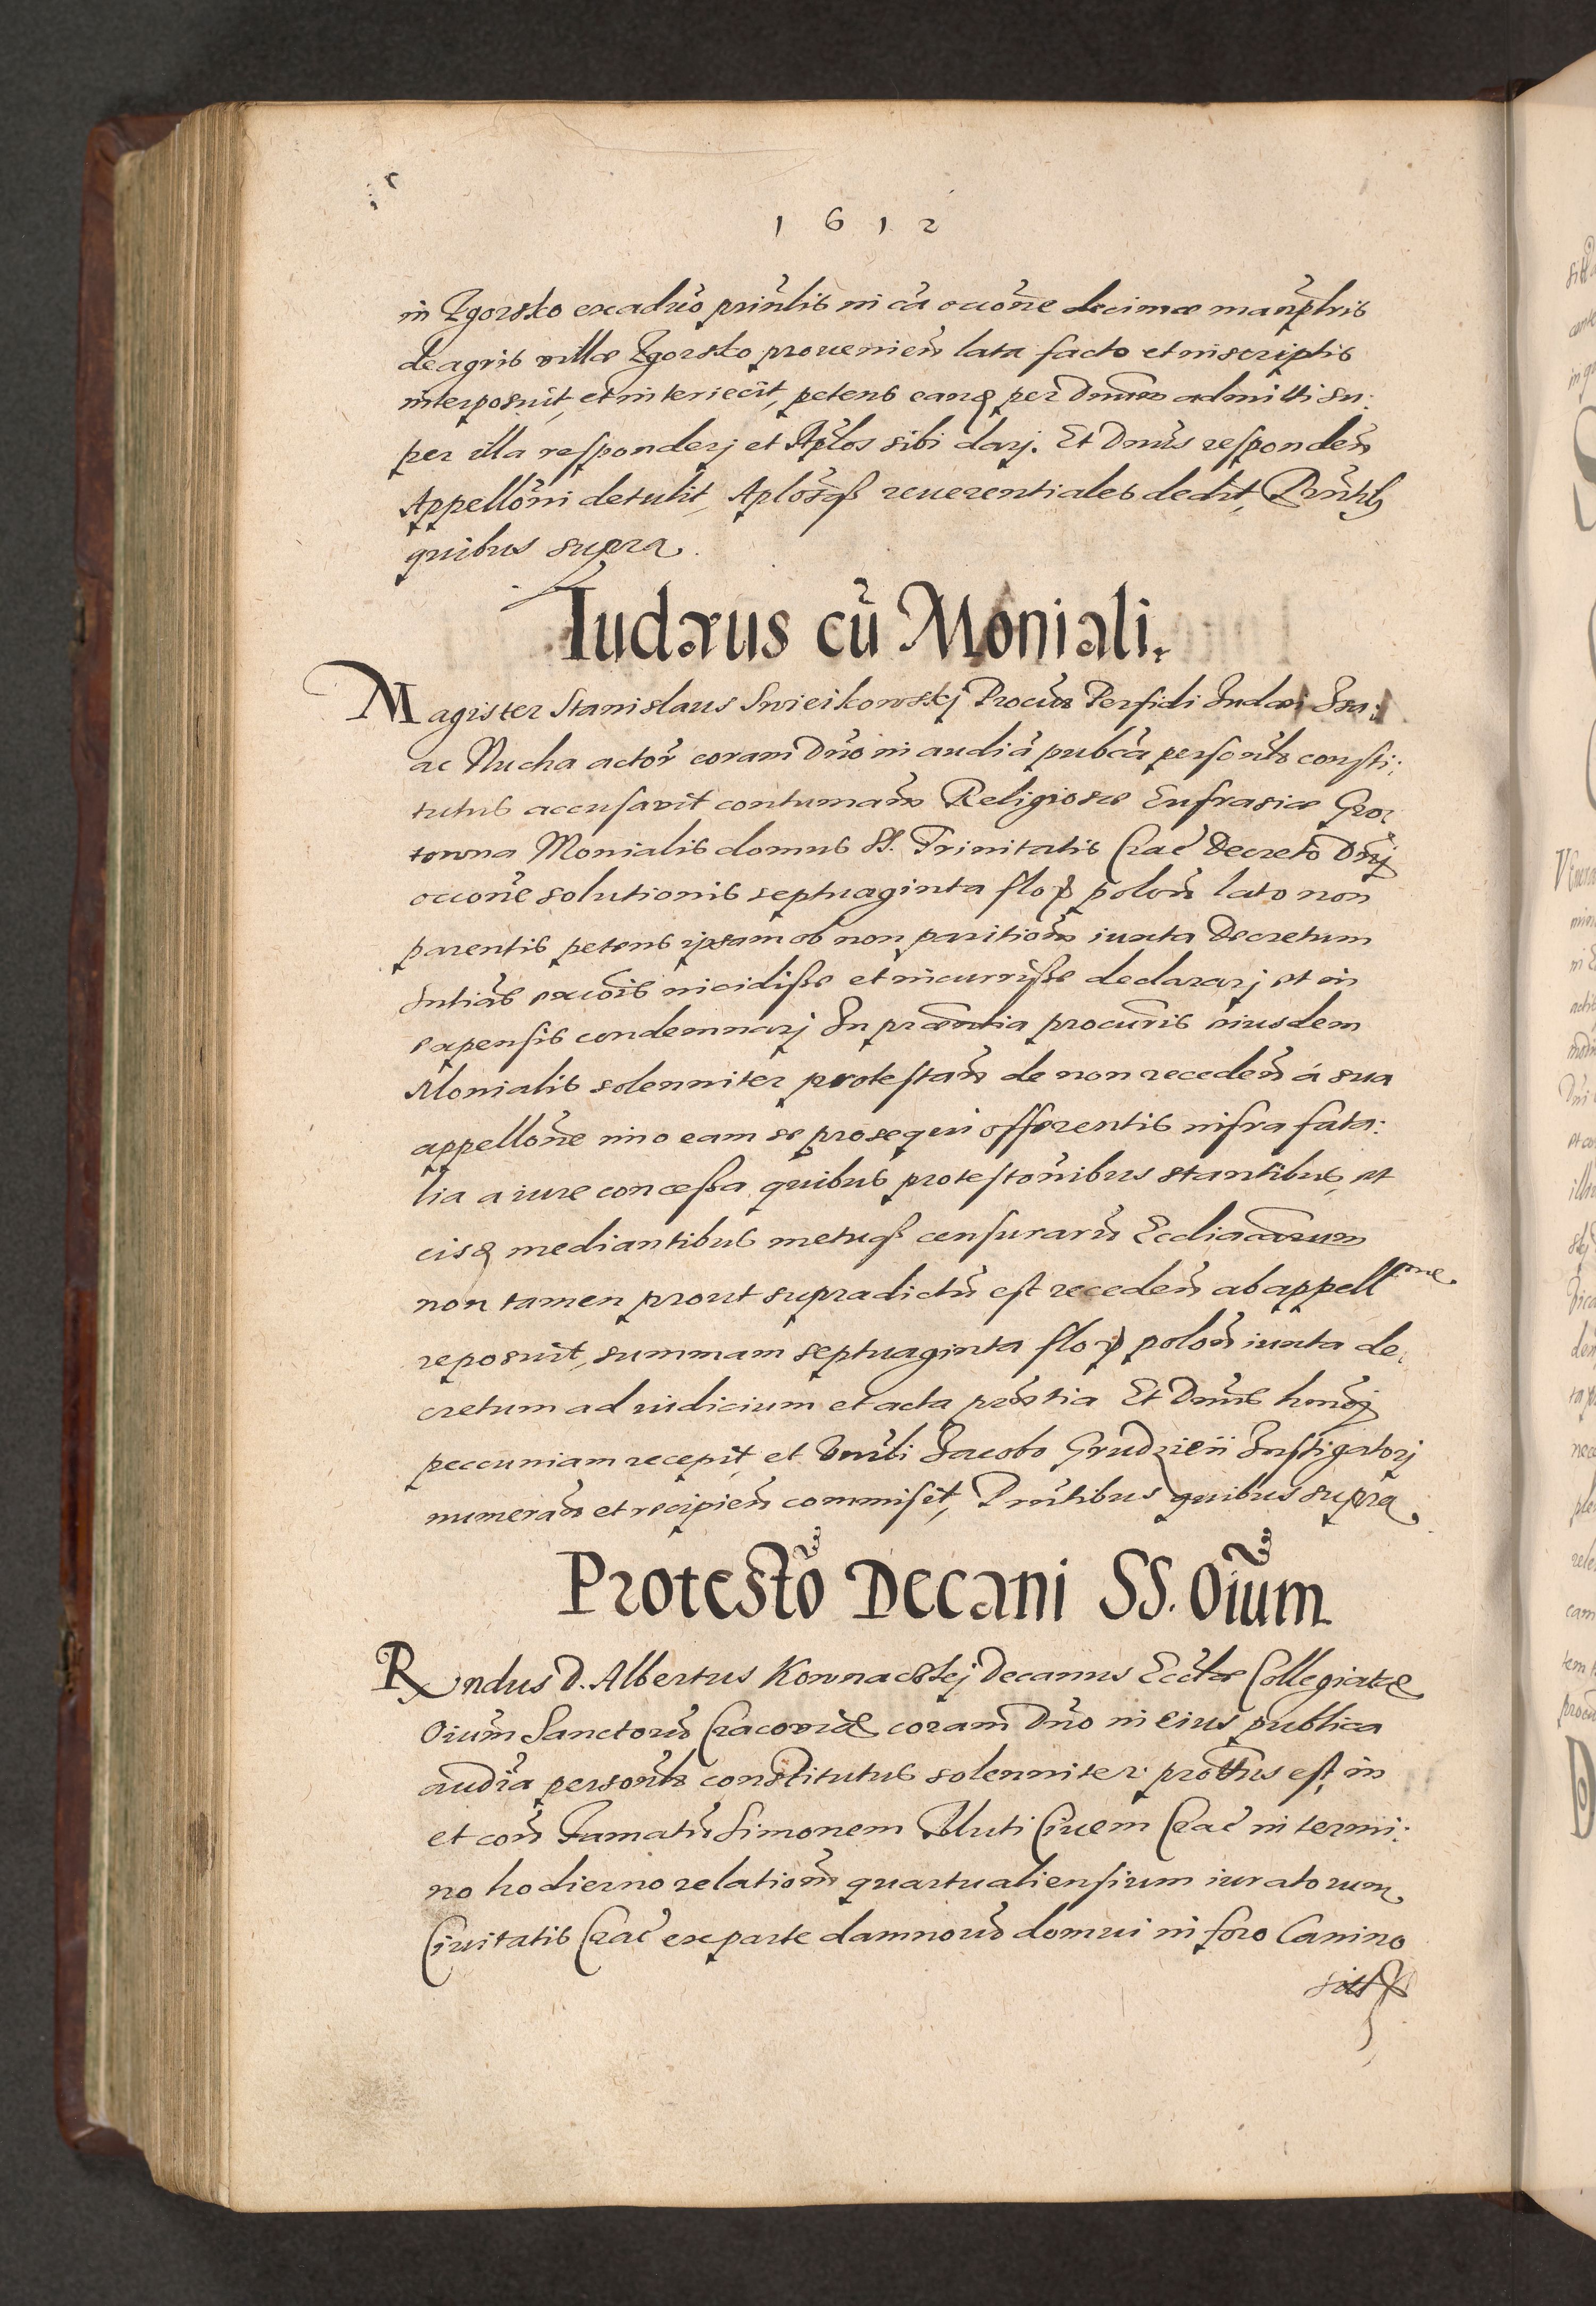 1612
in Zgorsko ex aduo prinlis in cã occõne decimæ manplris
de agris villæ Zgorsko prouenieñ lata facto et in scriptis
interposuit, et interiecit, petens eanq per Dnum admitti su:
per illa responderj et Aplos sibi darj. Et Dnus respondeñ
Appellõni detulit, Aplosqß reuerentiales dedit, Prñtib
quibus supra.
Iudæus cũ Moniali.
Magister Stanislaus Swieikowskj Procur Perfidi Iudæi Isa:
ac Nucha actor coram Dño in audiã pubca personlr consti:
tutus accusavit contumaãm Religiosæ Eufrasiæ Gro:
towna Monialis domus SS. Trinitatis Crac̃ Decreto Dnj
occõne solutionis septuaginta flor poloñ lato non
parentis petens ipsam ob non paritioñ iuxta Decretum
sntiãs excõis incidisse et incurrisse declararj et in
expensis condemnarj In præntia procuris eiusdem
Monialis solenniter protestañ de non recedeñ á sua
appellõne imo eam se prosequi offerentis infra fata:
lia a iure concessa, quibus protestõnibus stantibus, et
eisq mediantibus metuqß censurarũ Ecclia͠carum
non tamen prout supradictũ est recedeñ ab appellone
reposuit, summam septuaginta flor poloñ iuxta de:
cretum ad iudicium et acta prñtia Et Dnus hmõj
peccuniam recepit, et Dnili Jacobo Grudzień Instigatorj
numerañ et recipieñ commisit, Prñtibus quibus supra
Protesto Decani SS. Oium
Rndus D. Albertus Kownackskj Decanus Ecclæ Collegiatæ
Oium Sanctorũ Cracoviæ coram Dño in eius publica
audia personlr constitutus solenniter prottus est in
et coñ Famatũ Simonem Nluti Ciuem Crac̃ in termi:
no hodierno relatioñ quartualiensium iuratorum
Ciuitatis Crac̃ ex parte damnorũ domui in foro Canino